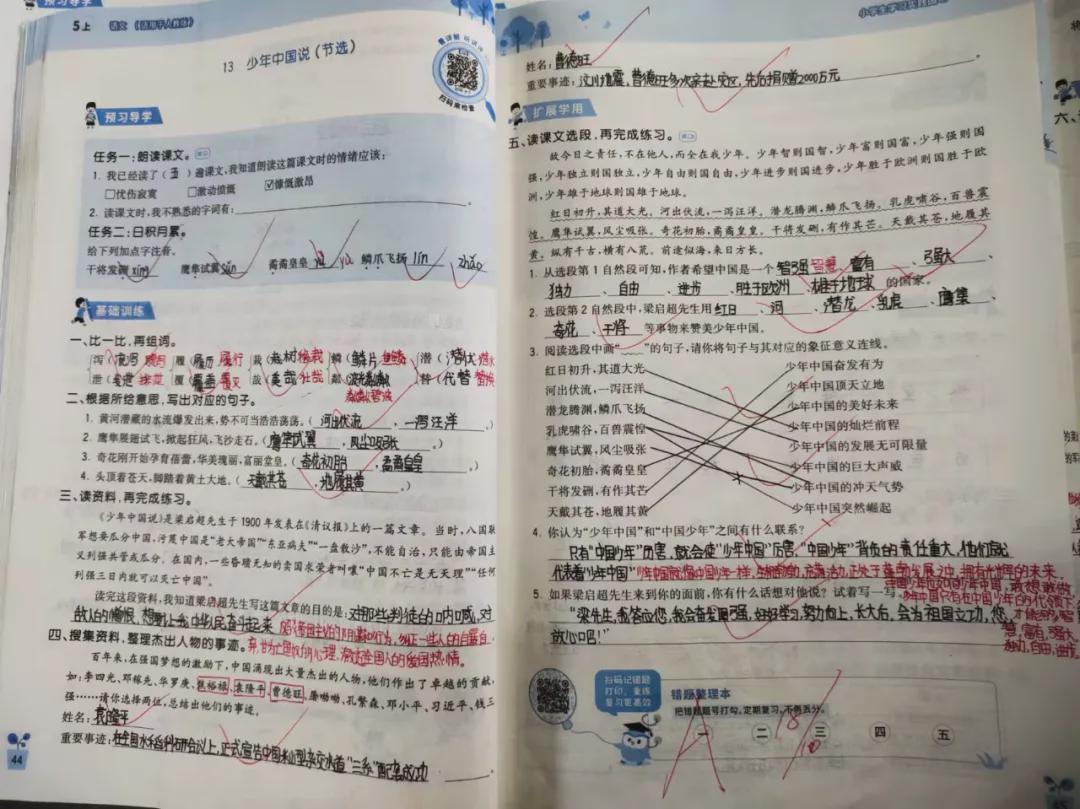 预习导学
5上 语文（适用于人教版）
13 少年中国说（节选）
扫码来检查
预习导学
任务一：朗读课文。
1. 我已经读了（ 五 ）遍课文，我知道朗读这篇课文时的情绪应该：
□忧伤寂寞 □激动愤慨 ☑慷慨激昂
2. 读课文时，我不熟悉的字词有：
任务二：日积月累。
给下列加点字注音。
干将发硎 xíng 鹰隼试翼 sǔn 矞矞皇皇 yù 鳞爪飞扬 lín zhǎo
基础训练
一、比一比，再组词。
泻 履 履历 履行 栽 栽树 鳞 鳞片 潜 潜伏 潜水
泄 覆 覆盖 覆灭 哉 美哉 壮哉 粼 波光粼粼 替 代替
二、根据所给意思，写出对应的句子。
1. 黄河潜藏的水流爆发出来，势不可当浩浩荡荡。（ 河出伏流 ，一泻汪洋 。）
2. 鹰隼展翅试飞，掀起狂风，飞沙走石。（ 鹰隼试翼 ，风尘吸张 。）
3. 奇花刚开始孕育蓓蕾，华美瑰丽，富丽堂皇。（ 奇花初胎 ，矞矞皇皇 。）
4. 头顶着苍天，脚踏着黄土大地。（ 天戴其苍 ，地履其黄 。）
三、读资料，再完成练习。
《少年中国说》是梁启超先生于1900年发表在《清议报》上的一篇文章。当时，八国联
军想要瓜分中国，污蔑中国是“老大帝国”“东亚病夫”“一盘散沙”，不能自治，只能由帝国主
义列强共管或瓜分。在国内，一些昏聩无知的卖国求荣者叫嚷“中国不亡是无天理”“任何
列强三日内就可以灭亡中国”。
读完这段资料，我知道梁启超先生写这篇文章的目的是：对那些叛徒的呐喊，对
敌人的憎恨，想要让我中华儿女奋起来
四、搜集资料，整理杰出人物的事迹。
百年来，在强国梦想的激励下，中国涌现出大量杰出的人物，他们作出了卓越的贡献，
如：李四光、邓稼先、华罗庚、焦裕禄、袁隆平、曹德旺、屠呦呦、孔繁森、邓小平、习近平、钱三
强……请你选择两位，总结出他们的事迹。
姓名：袁隆平
重要事迹：在全国水稻科研会议上，正式宣告中国籼型杂交水稻“三系”配套成功
44
姓名：曹德旺
重要事迹：汶川地震，曹德旺多次亲赴灾区，先后捐赠2000万元
扩展学用
五、读课文选段，再完成练习。
故今日之责任，不在他人，而全在我少年。少年智则国智，少年富则国富，少年强则国
强，少年独立则国独立，少年自由则国自由，少年进步则国进步，少年胜于欧洲则国胜于欧
洲，少年雄于地球则国雄于地球。
红日初升，其道大光。河出伏流，一泻汪洋。潜龙腾渊，鳞爪飞扬。乳虎啸谷，百兽震
惶。鹰隼试翼，风尘吸张。奇花初胎，矞矞皇皇。干将发硎，有作其芒。天戴其苍，地履其
黄。纵有千古，横有八荒。前途似海，来日方长。
1. 从选段第1自然段可知，作者希望中国是一个 智强 智慧 、富有 、强大 、
独力 、自由 、进步 、胜于欧洲 、雄于地球 的国家。
2. 选段第2自然段中，梁启超先生用 红日 、河 、潜龙 、乳虎 、鹰隼 、
奇花 、干将 等事物来赞美少年中国。
3. 阅读选段中画“﹏﹏”的句子，请你将句子与其对应的象征意义连线。
红日初升，其道大光 少年中国奋发有为
河出伏流，一泻汪洋 少年中国顶天立地
潜龙腾渊，鳞爪飞扬 少年中国的美好未来
乳虎啸谷，百兽震惶 少年中国的灿烂前程
鹰隼试翼，风尘吸张 少年中国的发展无可限量
奇花初胎，矞矞皇皇 少年中国的巨大声威
干将发硎，有作其芒 少年中国的冲天气势
天戴其苍，地履其黄 少年中国突然崛起
4. 你认为“少年中国”和“中国少年”之间有什么联系？
只有“中国少年”厉害，就会使“少年中国”厉害，“中国少年”背负的责任重大，他们就
代表着“少年中国”
5. 如果梁启超先生来到你的面前，你有什么话想对他说？试着写一写。
“梁先生，我答应您，我会奋发图强，好好学习，努力向上，长大后，会为祖国立功，您
放心吧！”
扫码记错题
打印、重练
复习更高效
错题整理本
把错题题号打勾，定期复习，不留丢分。
一 二 三 四 五
A